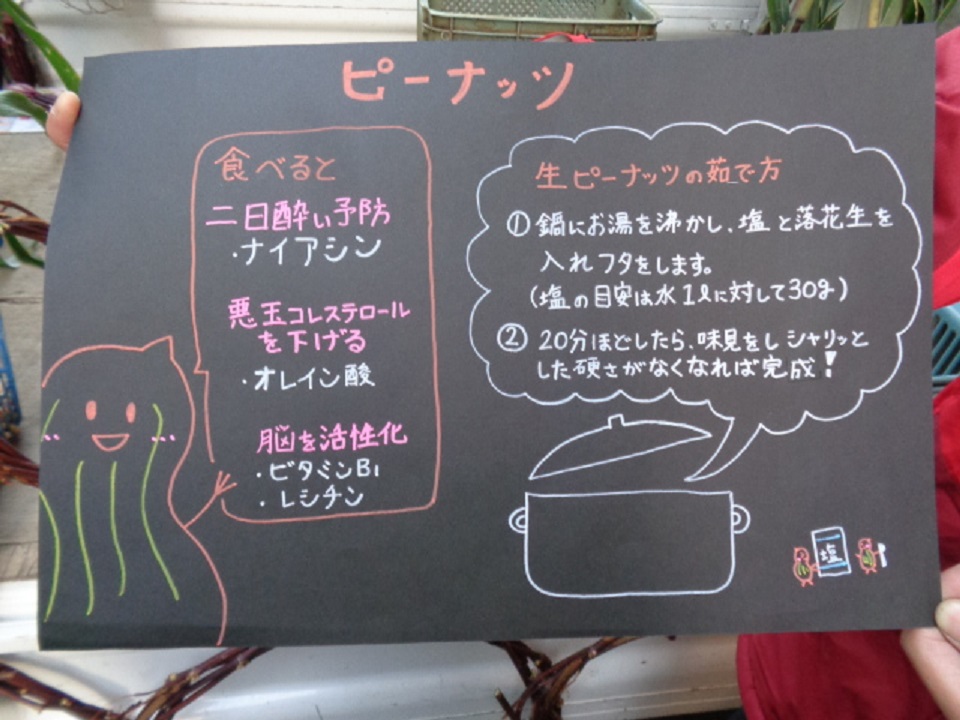 ピーナッツ
食べると
二日酔い予防
・ナイアシン
悪玉コレステロール
を下げる
・オレイン酸
脳を活性化
・ビタミンB1
・レシチン
生ピーナッツの茹で方
① 鍋にお湯を沸かし、塩と落花生を
入れフタをします。
(塩の目安は水1ℓに対して30g)
② 20分ほどしたら、味見をしシャリッと
した硬さがなくなれば完成!
塩